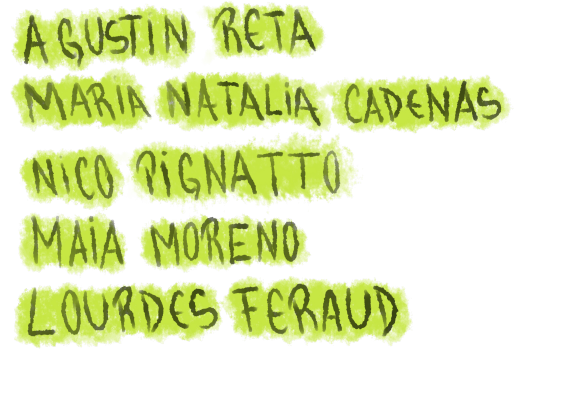 AGUSTIN RETA
MARIA NATALiA CADENAS
NICO PiGNATTO
MAiA MORENO
LOURDES FERAUD